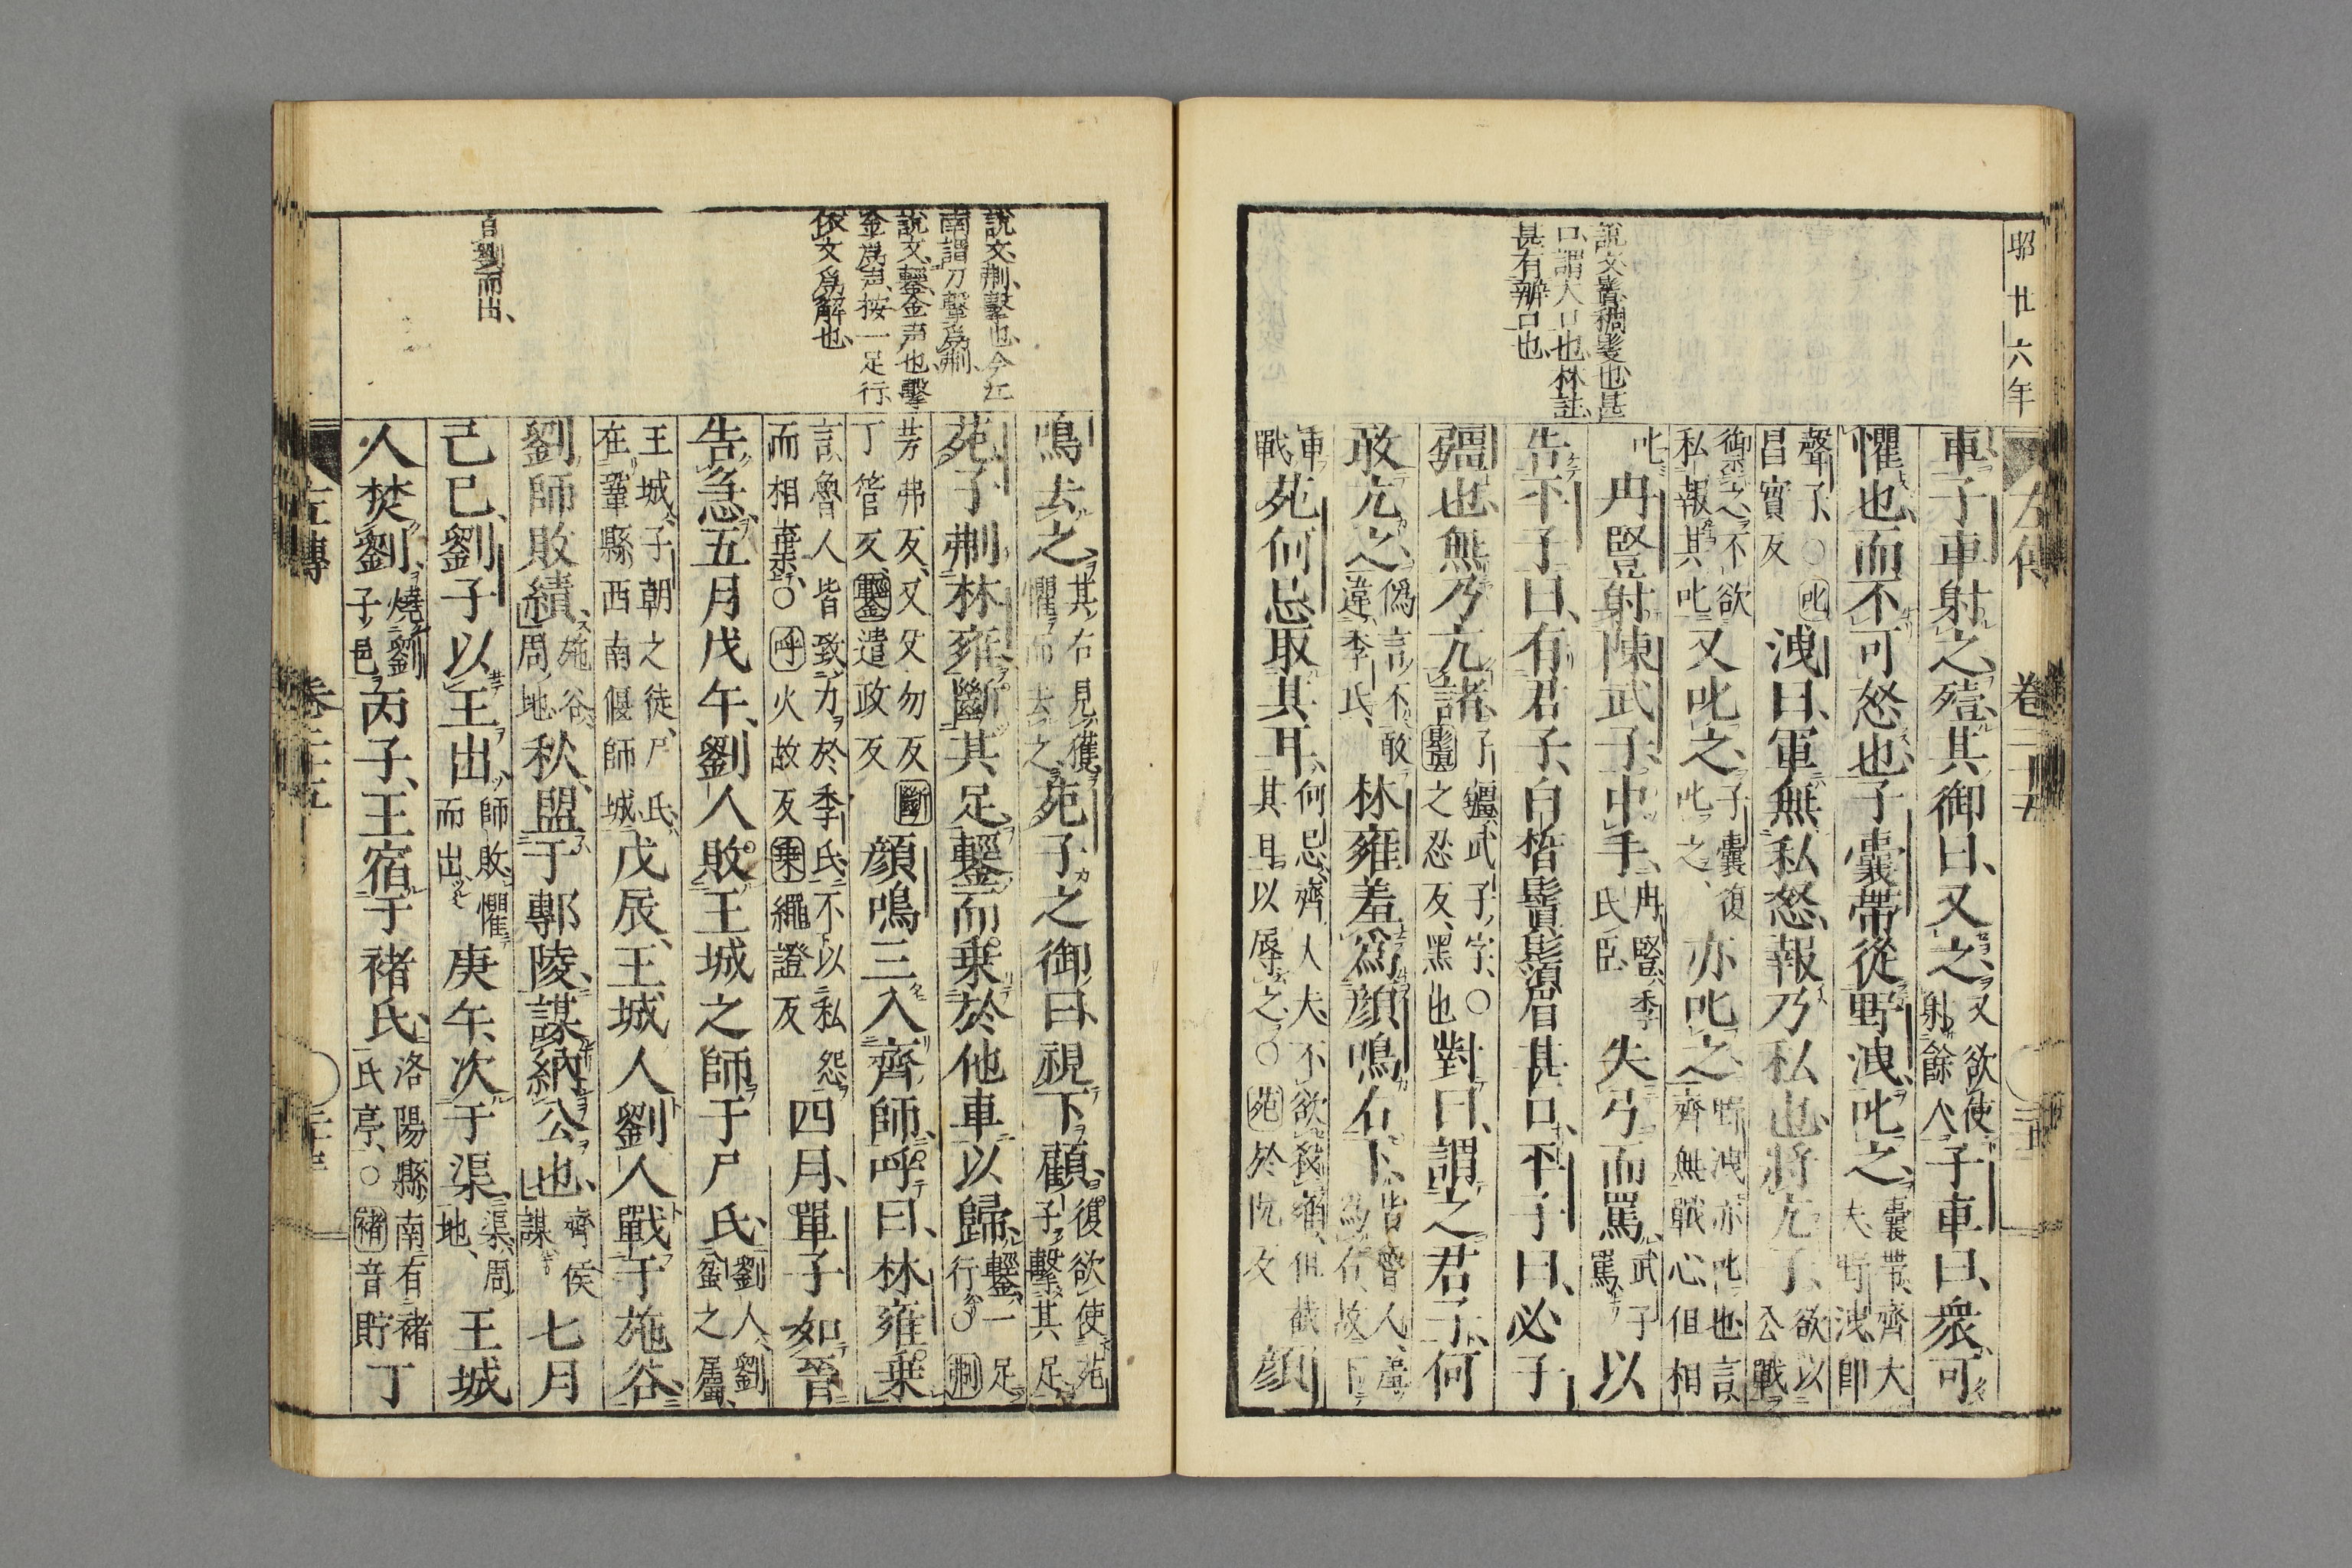 昭廿六年
左傳 卷二十五
說文鬒稠髮也甚
口謂大口也林註
甚有辯口也
車子車射之殪其御曰又之又欲使射餘人子車曰衆可
懼也而不可怒也子囊帶從野洩叱之囊帶齊大夫野洩即
聲子○叱昌實反洩曰軍無私怒報乃私也將亢子欲以公戰
御之不欲私報其叱又叱之子囊復叱之亦叱之野洩亦叱也言齊無戰心但相
叱冉豎射陳武子中手冉豎季氏臣失弓而罵武子罵以
告平子曰有君子白皙鬒鬚眉甚口平子曰必子
彊也無乃亢諸子彊武子字○鬒之忍反黑也對曰謂之君子何
敢亢之偽言不敢違季氏林雍羞為顏鳴右下皆魯人羞為右故下
車戰苑何忌取其耳何忌齊大夫不欲殺雍但截其耳以辱之○苑於阮反顏
說文刜擊也今江
南謂刀擊爲刜
說文䥯金声也擊
金爲声按一足行
依文爲解也
自劉而出
鳴去之其右見獲懼而去之苑子之御曰視下顧復欲使苑子擊其足
苑子刜林雍斷其足䥯而乗於他車以歸䥯一足行○刜
芳弗反又父勿反斷丁管反䥯遣政反顏鳴三入齊師呼曰林雍乗
言魯人皆致力於季氏不以私怨而相棄○呼火故反乗繩證反四月單子如晉
告急五月戊午劉人敗王城之師于尸氏劉人劉蚠之屬
王城子朝之徒尸氏在鞏縣西南偃師城戊辰王城人劉人戰于施谷
劉師敗績施谷周地秋盟于鄟陵謀納公也齊侯謀七月
己巳劉子以王出師敗懼而出庚午次于渠渠周地王城
人焚劉燒劉子邑丙子王宿于褚氏洛陽縣南有褚氏亭○褚音貯丁
左傳 卷二十五